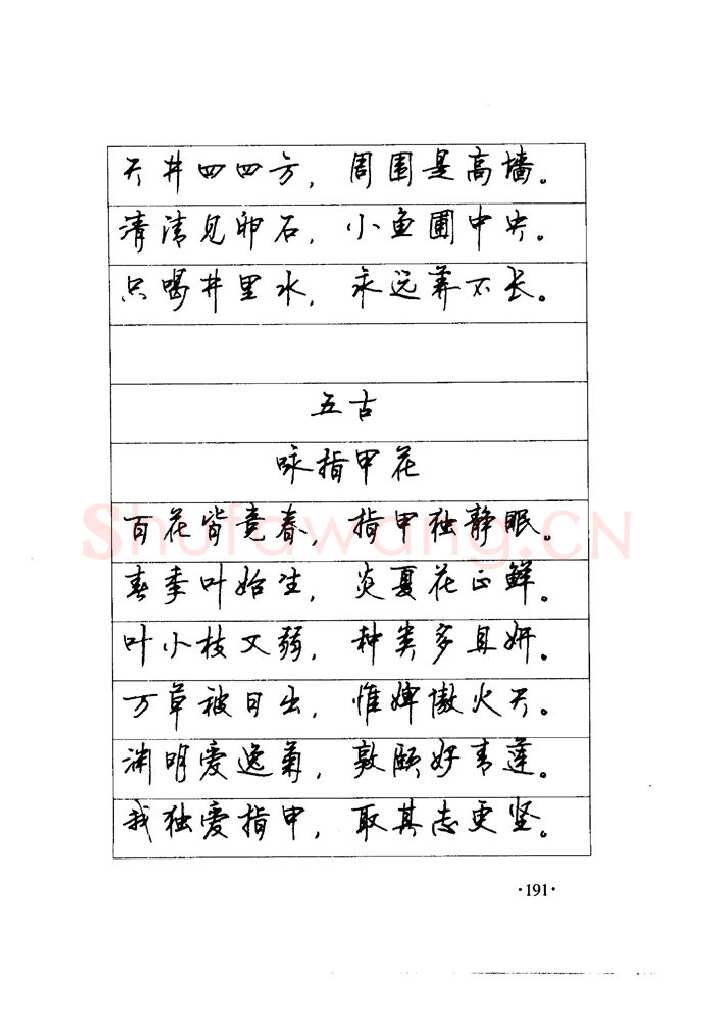 天井四四方，周围是高墙。
清清见卵石，小鱼囿中央。
只喝井里水，永远养不长。
五古
咏指甲花
百花皆竞春，指甲独静眠。
春季叶始生，炎夏花正鲜。
叶小枝又弱，种类多且妍。
万草被日出，惟婢傲火天。
渊明爱逸菊，敦颐好青莲。
我独爱指甲，取其志更坚。
·191·
Shufawang.CN